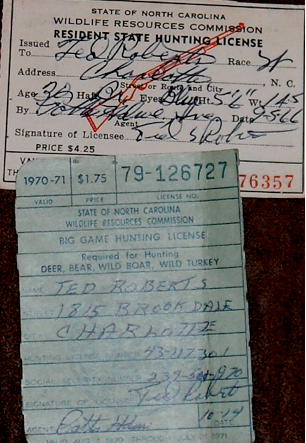 STATE OF NORTH CAROLINA
WILDLIFE RESOURCES COMMISSION
RESIDENT STATE HUNTING LICENSE
Issued To Ted Roberts Race W
Address Charlotte N.C.
Street or Route and City
Age Hair Eyes Blue Ht. 5'6" Wt. 145
By Date 9-5-66
Agent
Signature of Licensee Ted S Roberts
PRICE $4.25
76357
1970-71 $1.75 79-126727
VALID PRICE LICENSE NO.
STATE OF NORTH CAROLINA
WILDLIFE RESOURCES COMMISSION
BIG GAME HUNTING LICENSE
Required for Hunting
DEER, BEAR, WILD BOAR, WILD TURKEY
TED ROBERTS
1815 BROOKDALE
CHARLOTTE
SIGNATURE OF
10-14
VALID AUG 1 1970 THROUGH